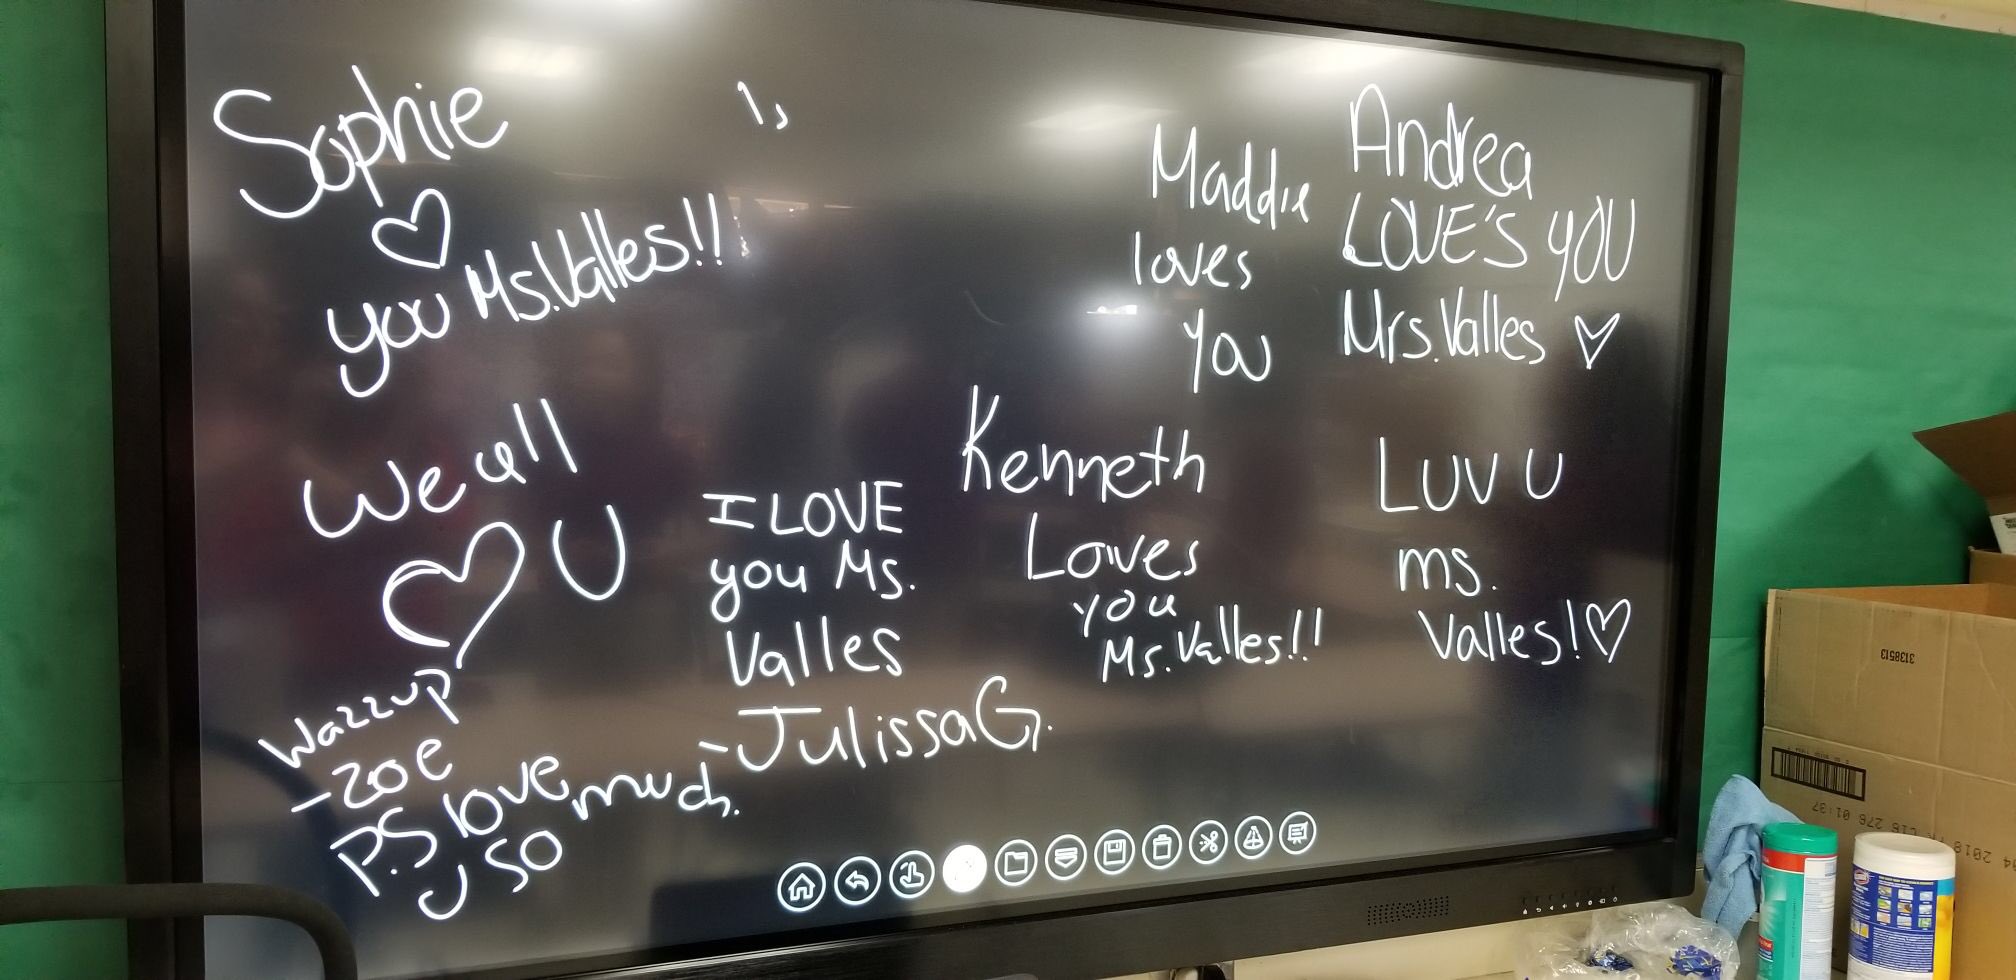 Sophie
♡
you Ms. Valles!!
Maddie
loves
you
Andrea
LOVE'S YOU
Mrs. Valles ♡
We all
♡ U
I LOVE
you Ms.
Valles
-Julissa G.
Kenneth
Loves
you
Ms. Valles!!
LUV U
ms.
Valles! ♡
Wazzup
-zoe
P.S love
U so much.
3138513